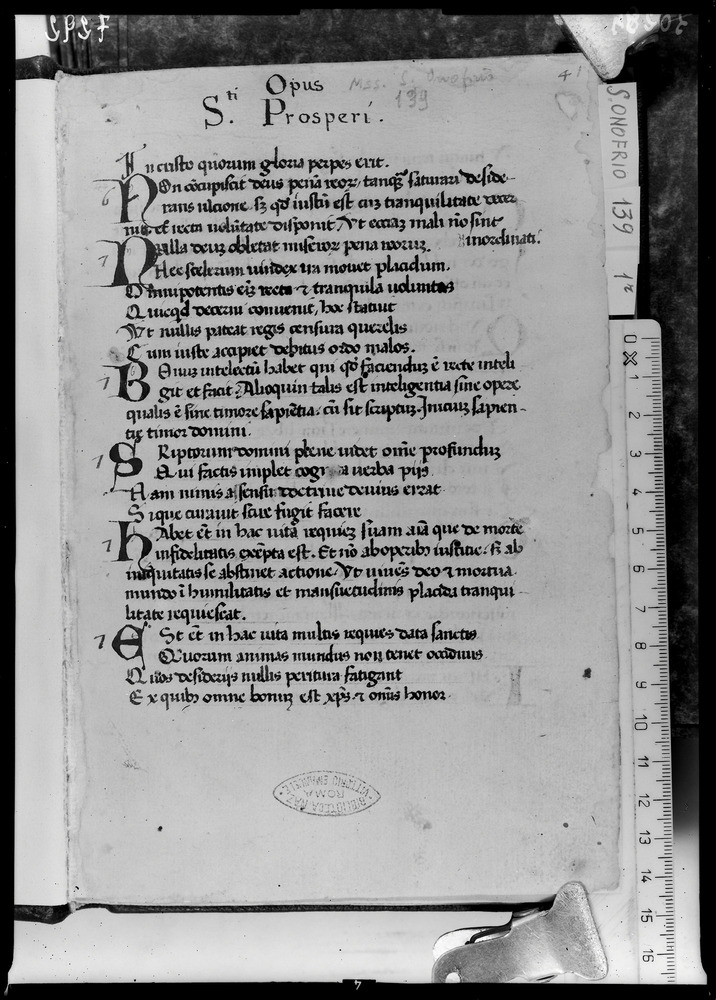 Opus
S.ti Prosperi.
Mss. S. Onofrio
139
41
In cristo quorum gloria perpes erit.
NOn cōcupiscit deus penā reoꝝ, tanqȝ saturari deside-
rans ulcione. sȝ qd̄ iustū est cuȝ tranquilitate
et recta volūtate disponit. Vt eciaȝ mali nō sint
inordinati.
Nulla deuȝ oblectat miseroꝝ pena reoruȝ.
Nec scelerum vindex ira mouet placidum.
Omnipotentis eiȝ recta ⁊ tranquila uoluntas
Quicqd̄ decerni conuenit, hoc statuit
Vt nullis pateat regis censura querelis
Cum iuste accipiet debitus ordo malos.
BOnuȝ intelectū habet qui qd̄ faciendūȝ ē recte inteli
git et facit. Alioquin talis est inteligentia sine opere
qualis ē sine timore sapiētia. cū sit scriptuȝ. Iniciuȝ sapien-
tie timor domini.
SCriptorum domini plene uidet om̄e profunduȝ
Qui factis implet cognita uerba pijs
Nam nimis a sensu doctrine deuius errat
Sique curauit scire fugit facere
HAbet ēt in hac uita requieȝ suam aīa que de morte
infidelitatis exēpta est. Et nō ab operibȝ iustitie. sȝ ab
iniquitatis se abstinet actione. Vt uiuēs deo ⁊ mortua
mundo ī humilitatis et mansuetudinis placida tranqui
litate requiescat.
ESt ēt in hac uita multis requies data sanctis
Quorum animas mundus non tenet occiduus
Quos desiderijs nullis peritura fatigant
Ex quibȝ omne bonuȝ est xp̄s ⁊ om̄is honor.
BIBLIOTECA NAZ
ROMA
VITTORIO EMANUELE
S. ONOFRIO 139 1r
0 1 2 3 4 5 6 7 8 9 10 11 12 13 14 15 16
7292